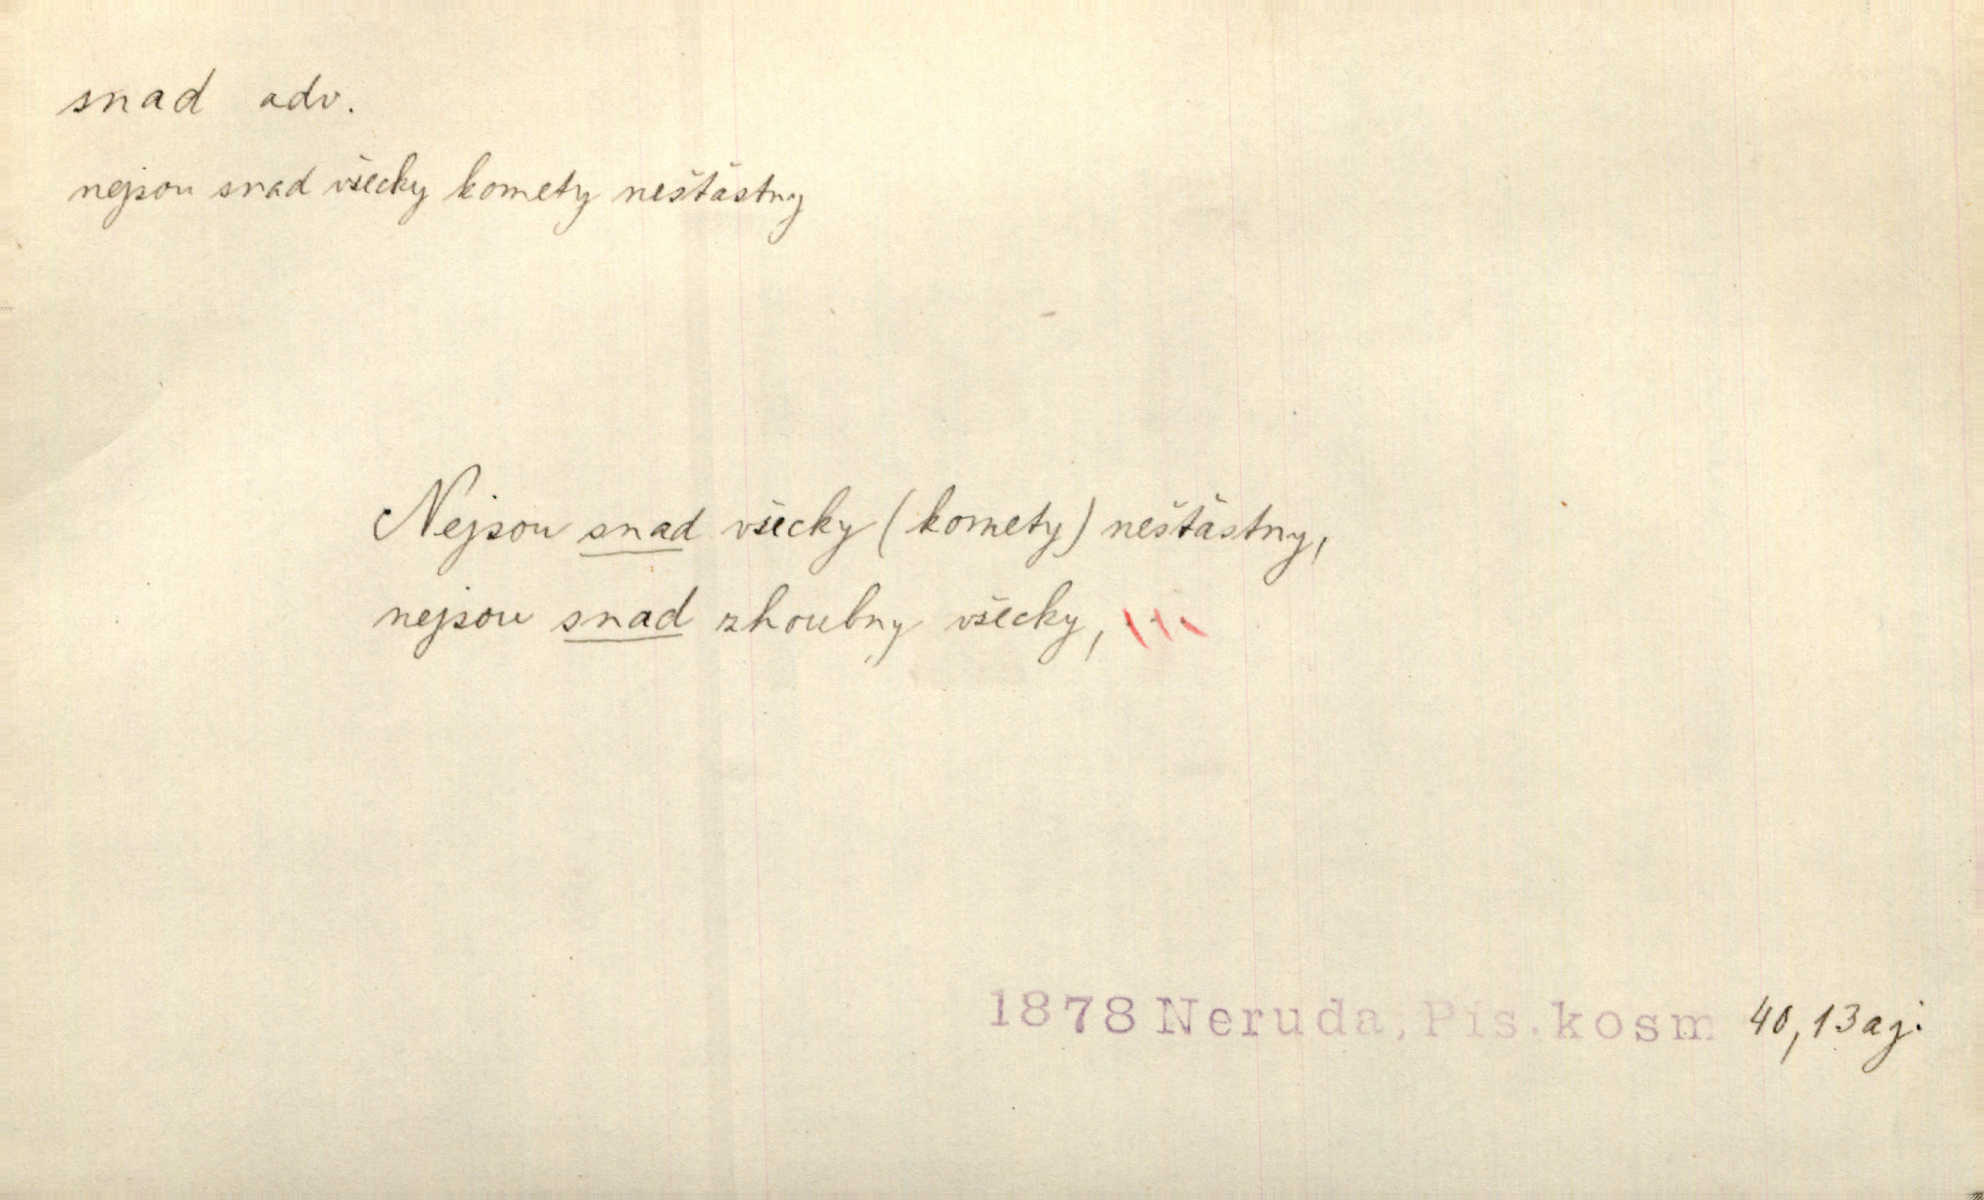 snad adv.
nejsou snad všecky komety nešťástny
Nejsou snad všecky (komety) nešťástny,
nejsou snad zhoubny všecky,
1878 Neruda, Pís. kosm 40,13 aj.